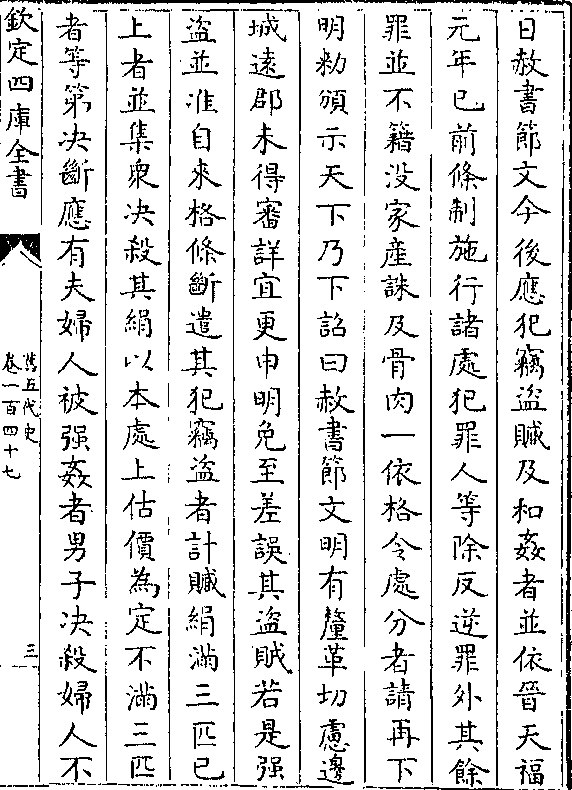 日赦書節文今後應犯竊盗贓及和姦者並依晉天福
元年已前條制施行諸處犯罪人等除反逆罪外其餘
罪並不籍没家産誅及骨肉一依格令處分者請再下
明勑頒示天下乃下詔曰赦書節文明有釐革切慮邊
城遠郡未得審詳宜更申明免至差誤其盗賊若是强
盗並准自來格條斷遣其犯竊盗者計贓絹滿三匹已
上者並集衆决殺其絹以本處上估價為定不滿三匹
者等第决斷應有夫婦人被强姦者男子决殺婦人不
欽定四庫全書
舊五代史
卷一百四十七
三